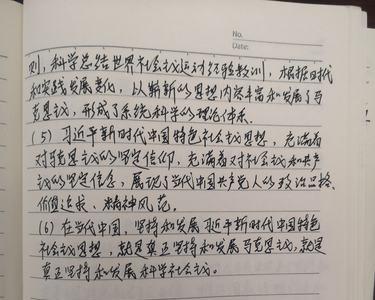 No.
Date:
则,科学总结世界社会主义运动经验教训,根据时代
和实践发展变化,以崭新的思想内容丰富和发展了马
克思主义,形成了系统科学的理论体系。
(5)习近平新时代中国特色社会主义思想,充满着
对马克思主义的坚定信仰,充满着对社会主义和共产
主义的坚定信念,展现了当代中国共产党人的政治品格、
价值追求、精神风范。
(6)在当代中国,坚持和发展习近平新时代中国特色
社会主义思想,就是真正坚持和发展马克思主义,就是
真正坚持和发展科学社会主义。